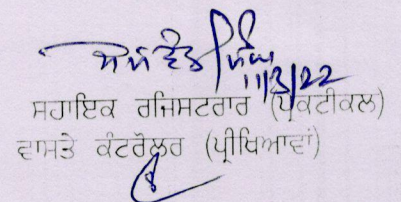 11/3/22
ਸਹਾਇਕ ਰਜਿਸਟਰਾਰ (ਪ੍ਰੈਕਟੀਕਲ)
ਵਾਸਤੇ ਕੰਟਰੋਲਰ (ਪ੍ਰੀਖਿਆਵਾਂ)